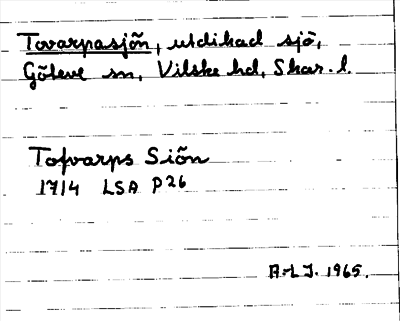 Tovarpasjön, utdikad sjö,
Göteve sn, Vilske hd, Skar. l.
Tofvarps Siön
1714 LSA P26
A-L J. 1965.